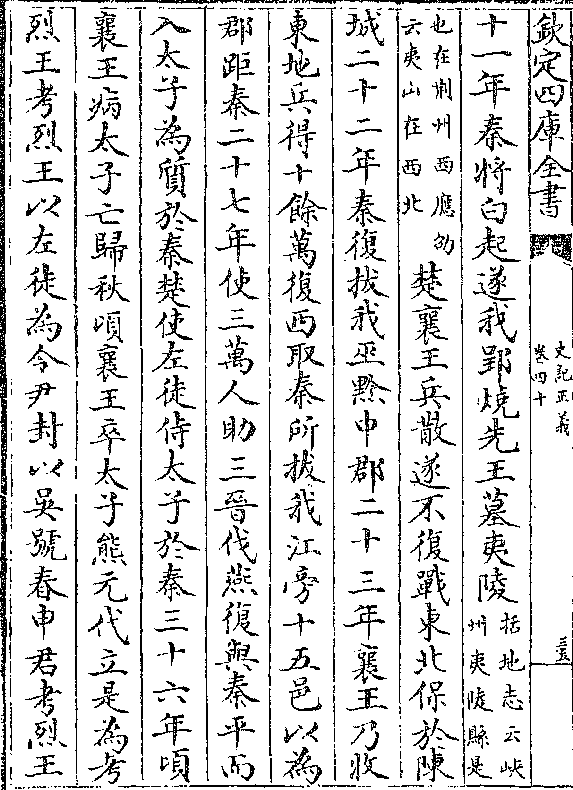 欽定四庫全書
史記正義
卷四十
十一年秦將白起遂我郢燒先王墓夷陵
括地志云峽
州夷陵縣是
也在荆州西應劭
云夷山在西北
楚襄王兵散遂不復戰東北保於陳
城二十二年秦復拔我巫黔中郡二十三年襄王乃收
東地兵得十餘萬復西取秦所拔我江旁十五邑以為
郡距秦二十七年使三萬人助三晉伐燕復與秦平而
入太子為質於秦楚使左徒侍太子於秦三十六年頃
襄王病太子亡歸秋頃襄王卒太子熊元代立是為考
烈王考烈王以左徒為令尹封以吳號春申君考烈王